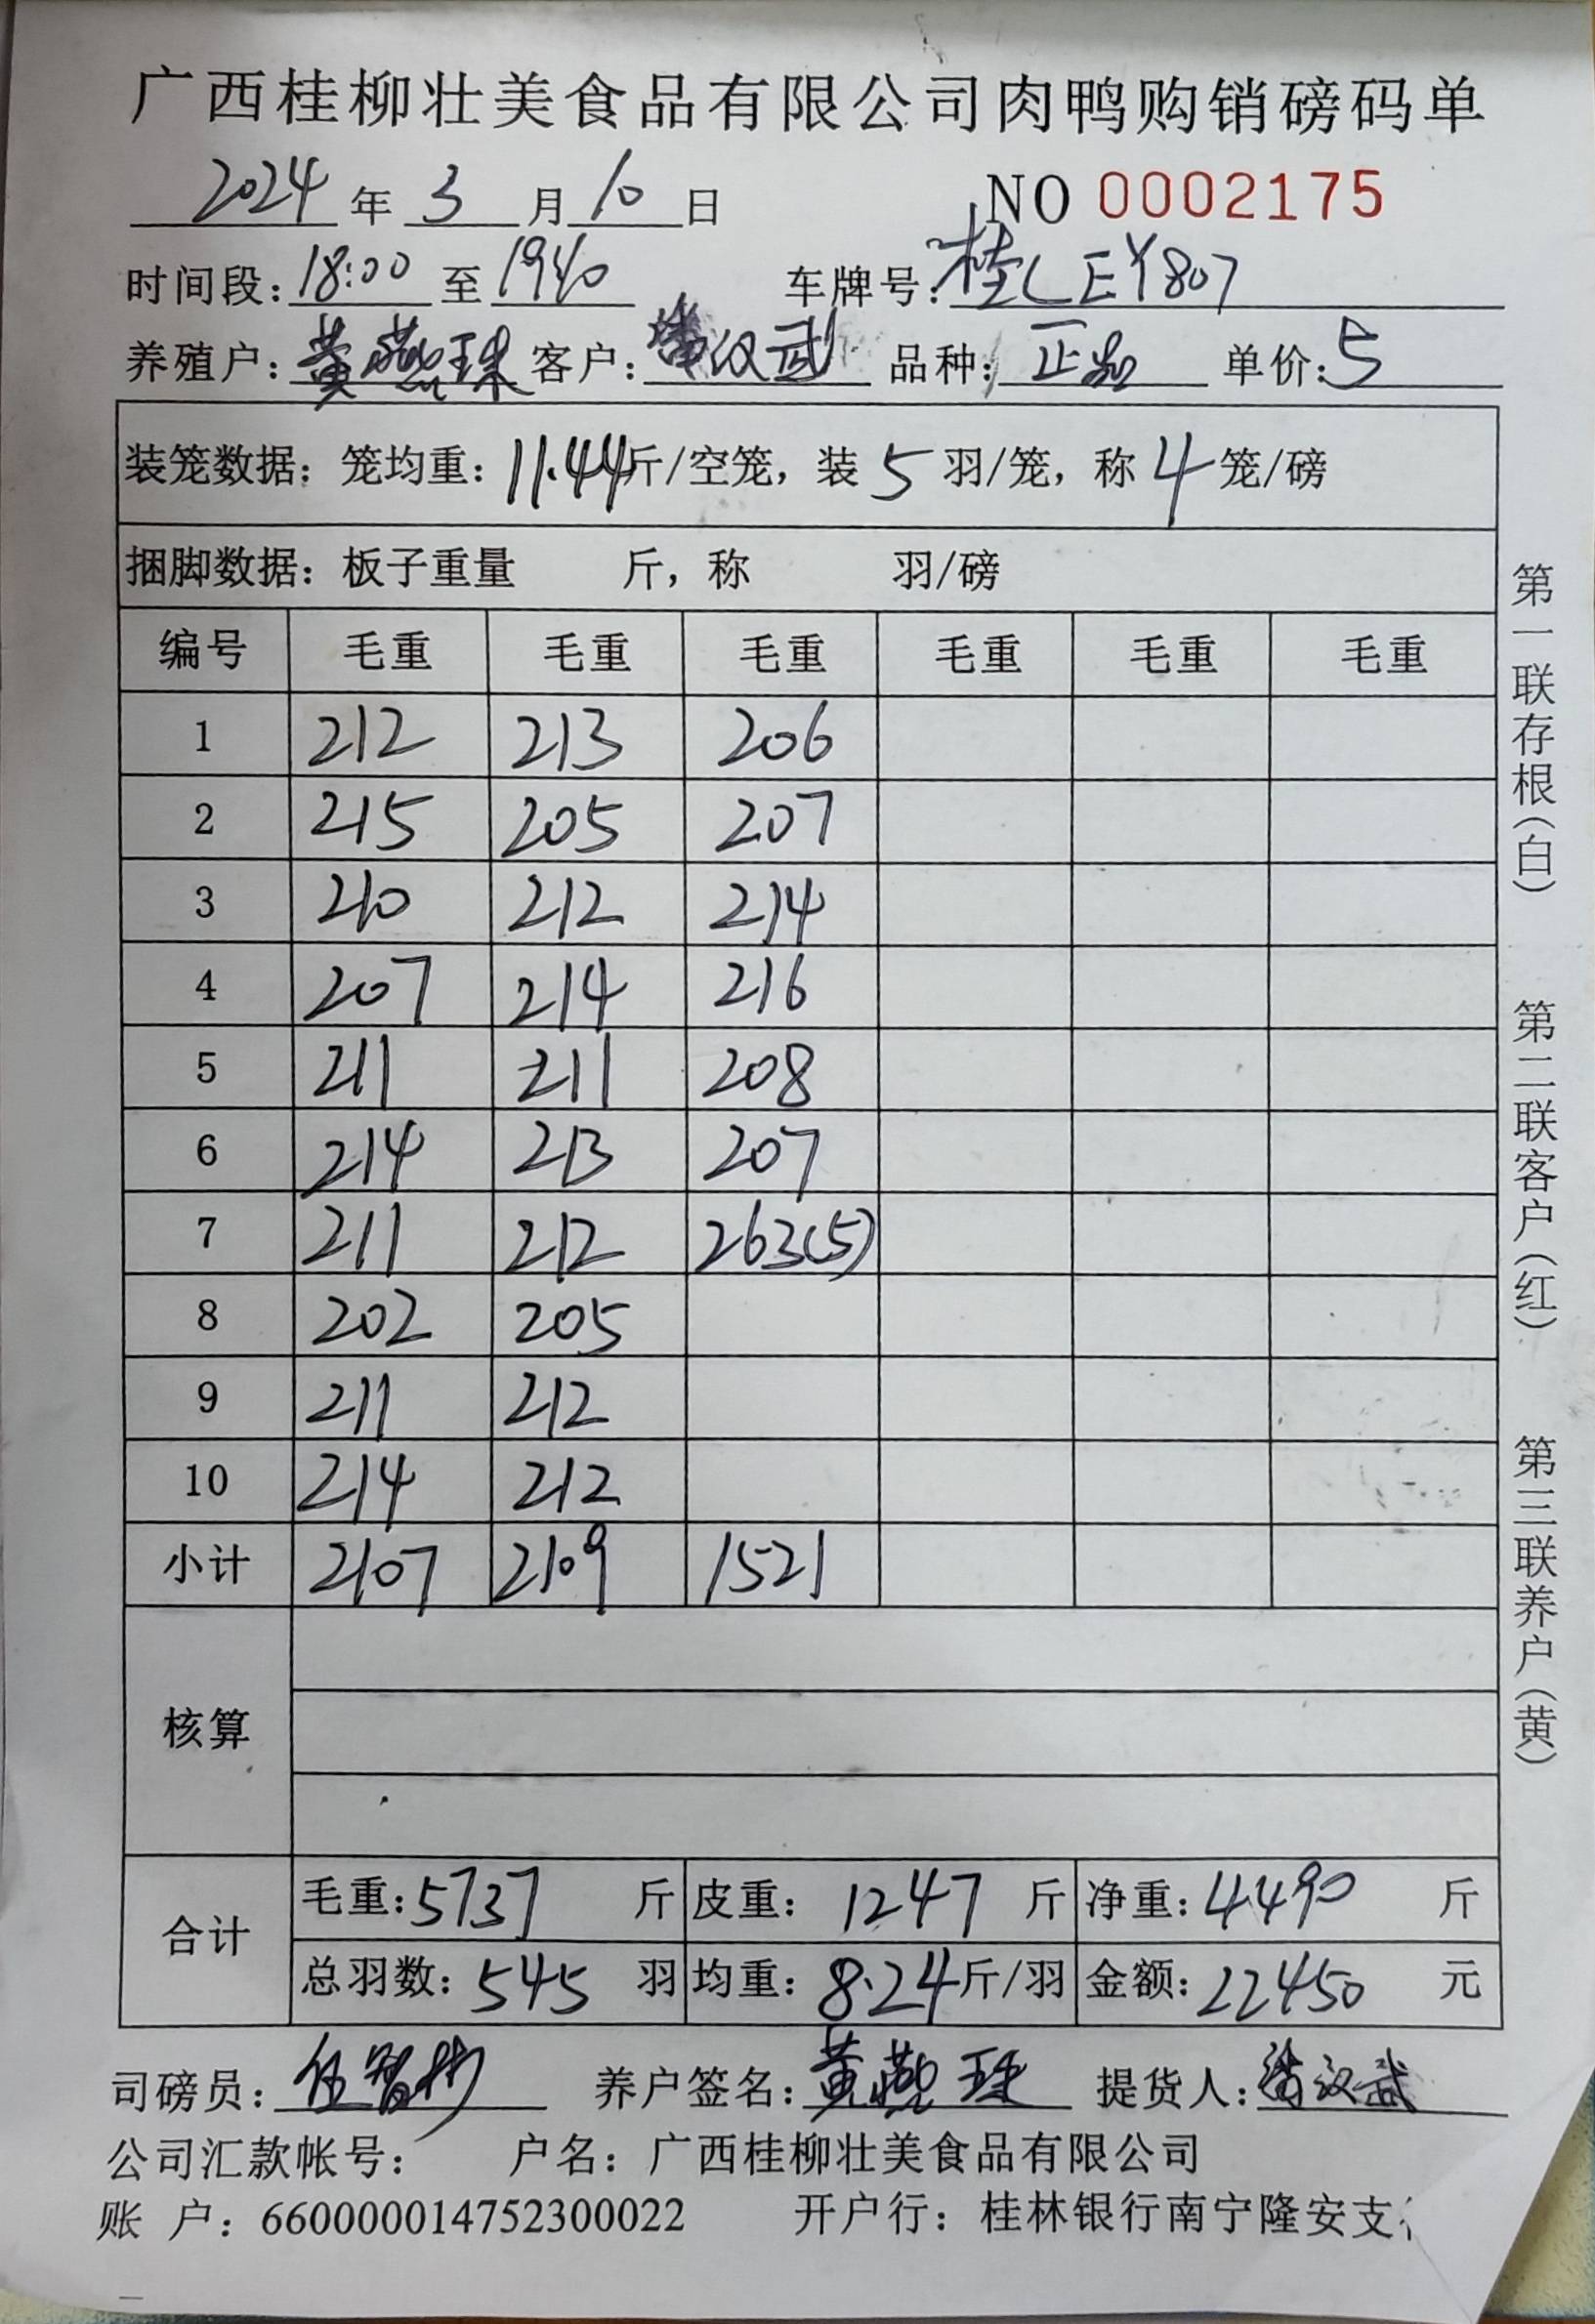 广西桂柳壮美食品有限公司肉鸭购销磅码单
2024年3月10日 NO 0002175
时间段:18:00至19:40 车牌号:桂LEY807
养殖户:黄燕珠 客户:潘汉武 品种:正品 单价:5
装笼数据:笼均重:11.44斤/空笼,装5羽/笼,称4笼/磅
捆脚数据:板子重量 斤,称 羽/磅
编号 毛重 毛重 毛重 毛重 毛重 毛重
1 212 213 206
2 215 205 207
3 210 212 214
4 207 214 216
5 211 211 208
6 214 213 207
7 211 212 263(5)
8 202 205
9 211 212
10 214 212
小计 2107 2109 1521
核算
合计 毛重:5737斤 皮重:1247斤 净重:4490斤
总羽数:545羽 均重:8.24斤/羽 金额:22450元
司磅员:伍智彬 养户签名:黄燕珠 提货人:潘汉武
公司汇款帐号: 户名:广西桂柳壮美食品有限公司
账 户:660000014752300022 开户行:桂林银行南宁隆安支
第一联存根(白) 第二联客户(红) 第三联养户(黄)